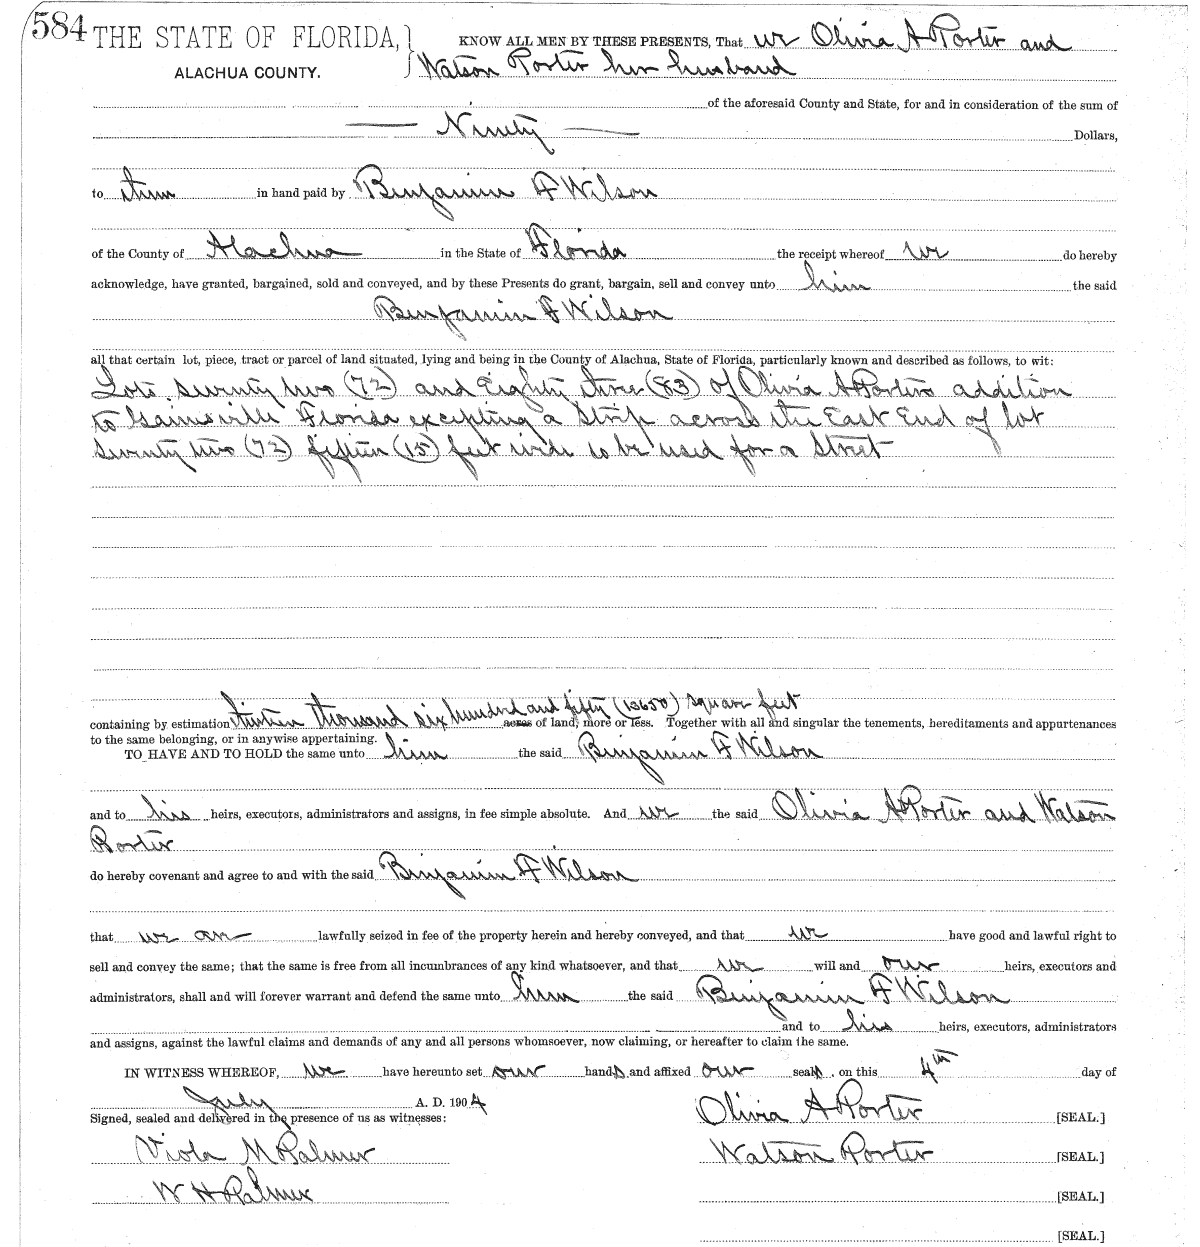 584 THE STATE OF FLORIDA, } KNOW ALL MEN BY THESE PRESENTS, That we Olivia A Porter and
ALACHUA COUNTY. Watson Porter her husband
of the aforesaid County and State, for and in consideration of the sum of
Ninety Dollars,
to them in hand paid by Benjamin F Wilson
of the County of Alachua in the State of Florida the receipt whereof we do hereby
acknowledge, have granted, bargained, sold and conveyed, and by these Presents do grant, bargain, sell and convey unto him the said
Benjamin F Wilson
all that certain lot, piece, tract or parcel of land situated, lying and being in the County of Alachua, State of Florida, particularly known and described as follows, to wit:
Lots seventy two (72) and Eighty three (83) of Olivia A Porters addition
to Gainesville Florida excepting a Strip across the East End of lot
seventy two (72) fifteen (15) feet wide to be used for a Street
thirteen thousand six hundred and fifty (13650) square feet
containing by estimation acres of land, more or less. Together with all and singular the tenements, hereditaments and appurtenances
to the same belonging, or in anywise appertaining.
TO HAVE AND TO HOLD the same unto him the said Benjamin F Wilson
and to his heirs, executors, administrators and assigns, in fee simple absolute. And we the said Olivia A Porter and Watson
Porter
do hereby covenant and agree to and with the said Benjamin F Wilson
that we are lawfully seized in fee of the property herein and hereby conveyed, and that we have good and lawful right to
sell and convey the same; that the same is free from all incumbrances of any kind whatsoever, and that we will and our heirs, executors and
administrators, shall and will forever warrant and defend the same unto him the said Benjamin F Wilson
and to his heirs, executors, administrators
and assigns, against the lawful claims and demands of any and all persons whomsoever, now claiming, or hereafter to claim the same.
IN WITNESS WHEREOF, we have hereunto set our hands and affixed our seals, on this 4th day of
July A. D. 1904
Signed, sealed and delivered in the presence of us as witnesses: Olivia A Porter [SEAL.]
Viola M Palmer Watson Porter [SEAL.]
W H Palmer [SEAL.]
[SEAL.]